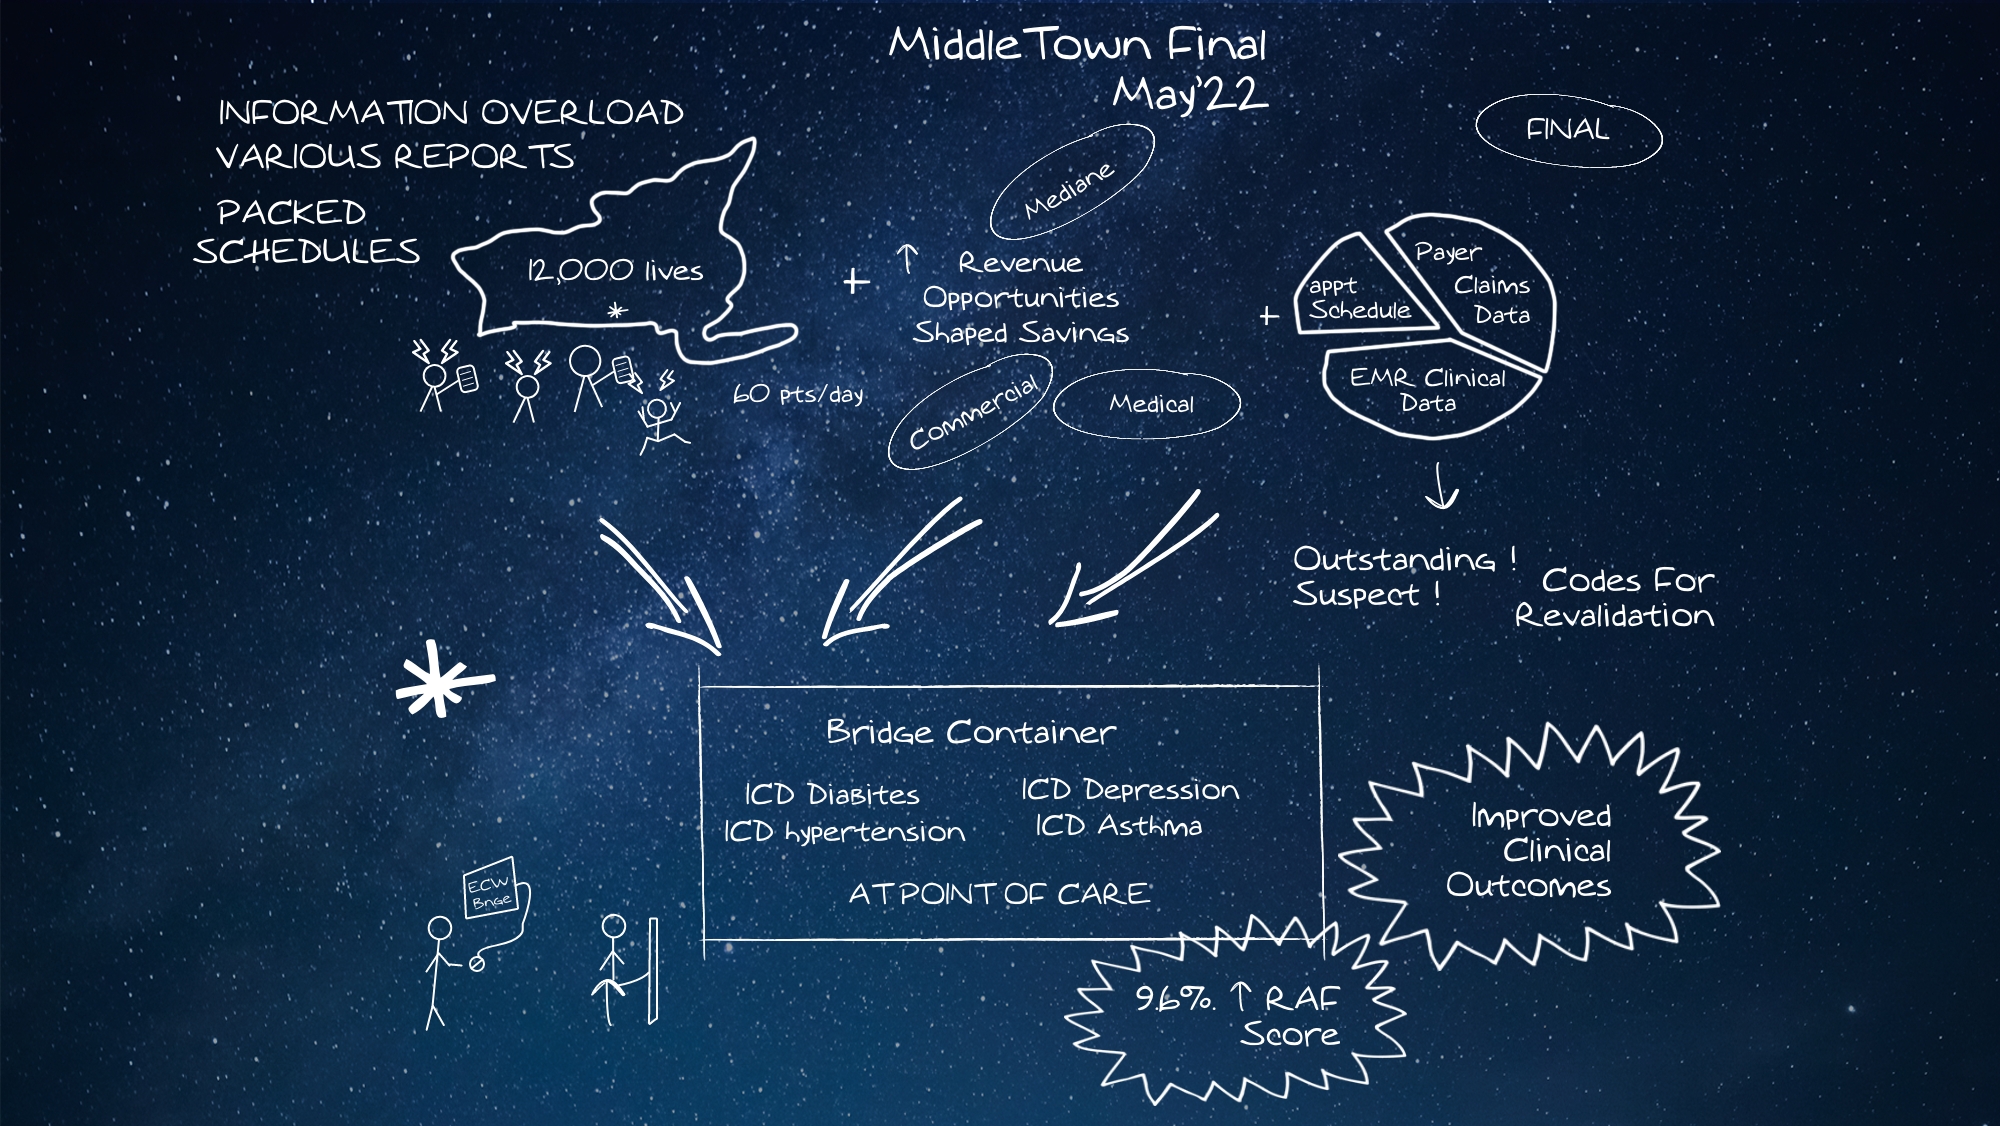 MiddleTown Final
May'22
INFORMATION OVERLOAD
VARIOUS REPORTS
PACKED
SCHEDULES
12,000 lives
*
60 pts/day
+
Mediane
↑ Revenue
Opportunities
Shaped Savings
Commercial
Medical
+
FINAL
appt
Schedule
Payer
Claims
Data
EMR Clinical
Data
Outstanding !
Suspect !
Codes For
Revalidation
*
Bridge Container
ICD Diabites
ICD hypertension
ICD Depression
ICD Asthma
AT POINT OF CARE
ECW
Bridge
Improved
Clinical
Outcomes
9.6% ↑ RAF
Score